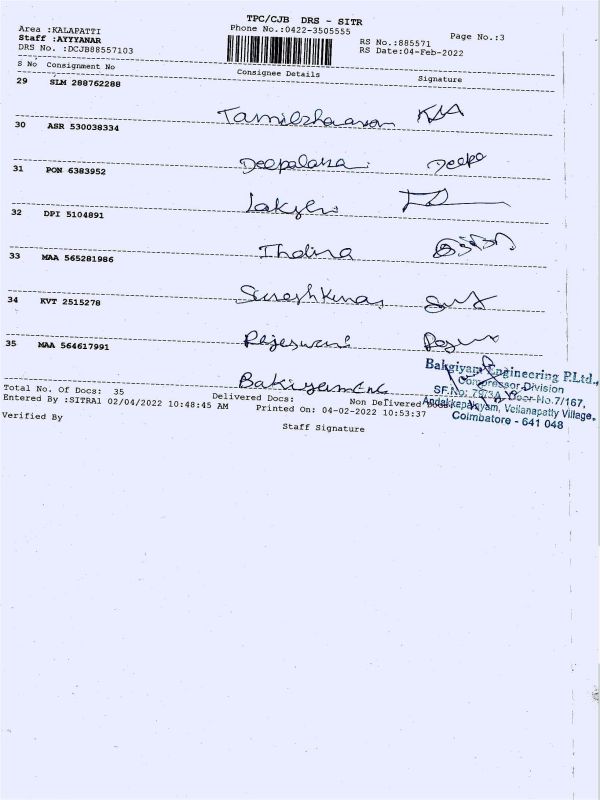 TPC/CJB DRS - SITR
Area :KALAPATTI
Phone No.:0422-3505555
Page No.:3
Staff :AYYYANAR
RS No.:885571
DRS No. :DCJB88557103
RS Date:04-Feb-2022
S No Consignment No Consignee Details Signature
29 SLM 288762288
Deepalara Deepa
30 ASR 530038334
31 PON 6383952
32 DPI 5104891
33 MAA 565281986
Sureshkumar
34 KVT 2515278
Rajeswari
35 MAA 564617991
Bakiyam Eng
Total No. Of Docs: 35 Delivered Docs: Non Delivered Docs:
Entered By :SITRA1 02/04/2022 10:48:45 AM Printed On: 04-02-2022 10:53:37
Verified By
Staff Signature
Bakgiyam Engineering P.Ltd.,
Compressor Division
SF.No: Door No.7/167,
Andakkapalayam, Vellanapatty Village,
Coimbatore - 641 048